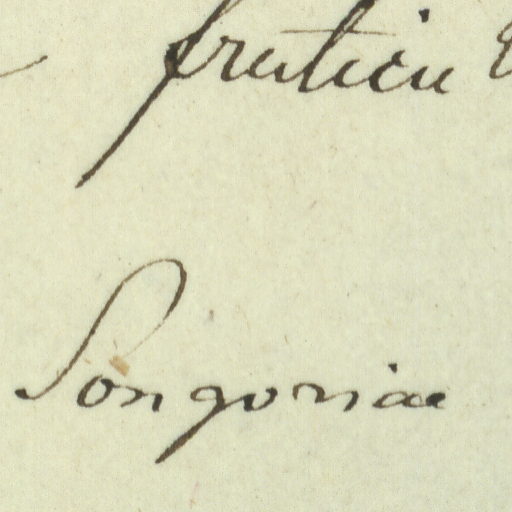 fruticu
Songoriae